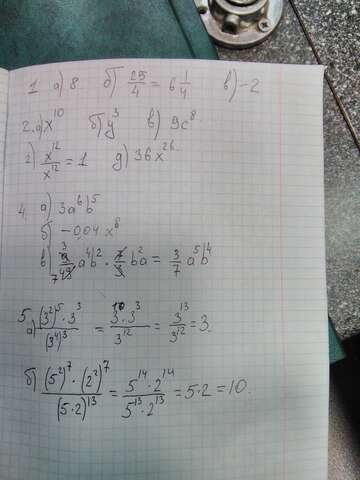 1 а) 8 б) 25/4 = 6 1/4 в) -2
2. а) x^10 б) y^3 в) 9c^8
г) x^12/x^12 = 1 д) 36x^26
4. а) 3a^6b^5
б) -0,04x^6
в) a^4b^2 · b^2a = 3/7 a^5b^4
5. а) ((3^2)^5 · 3^3)/(3^4)^3 = (3^10 · 3^3)/3^12 = 3^13/3^12 = 3.
б) ((5^2)^7 · (2^2)^7)/(5·2)^13 = (5^14 · 2^14)/(5^13 · 2^13) = 5·2 = 10.